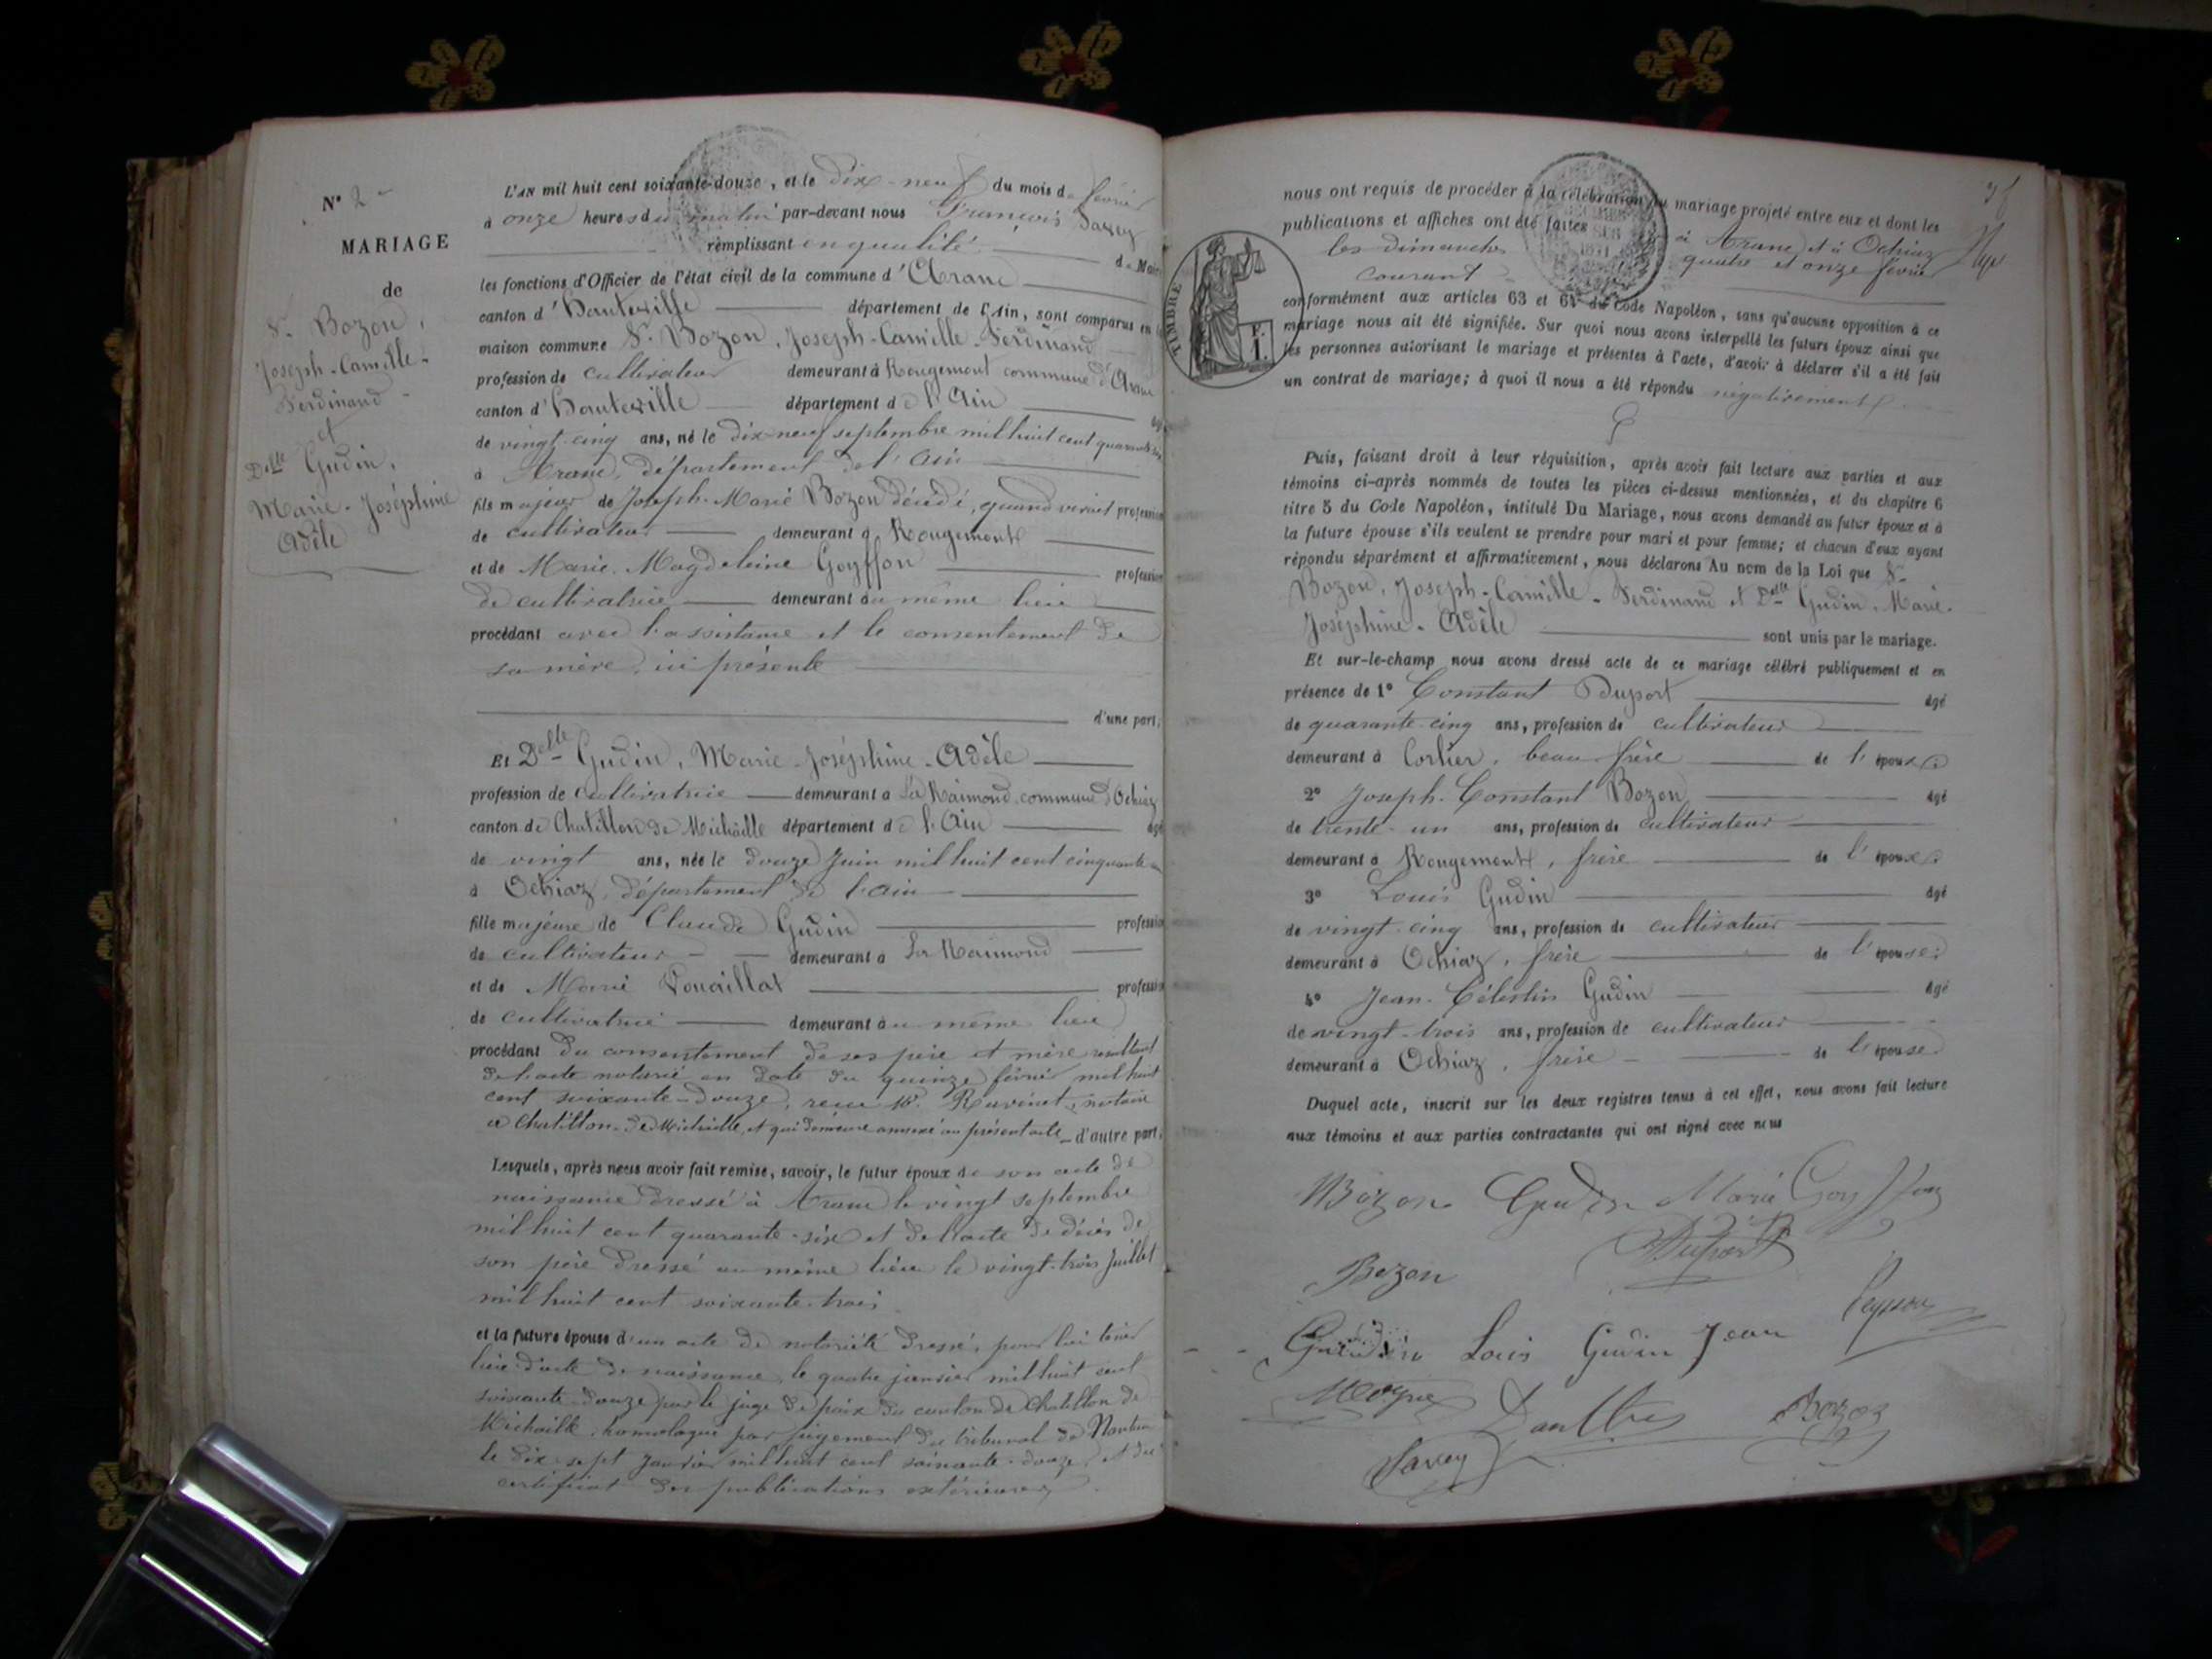 N° 2
MARIAGE
de
Sr Bozon,
Joseph-Camille-
Ferdinand
et
Delle Gudin,
Marie-Joséphine
Adèle
L'AN mil huit cent soixante-douze, et le dix-neuf du mois de février
à onze heures du matin par-devant nous François Savey
remplissant en qualité de Maire
les fonctions d'Officier de l'état civil de la commune d'Aranc
canton d'Hauteville département de l'Ain, sont comparus en la
maison commune Sr Bozon, Joseph-Camille-Ferdinand
profession de cultivateur demeurant à Rougemont commune d'Aranc
canton d'Hauteville département de l'Ain âgé
de vingt-cinq ans, né le dix-neuf septembre mil huit cent quarante-six
à Aranc, département de l'Ain
fils majeur de Joseph-Marie Bozon décédé, quand vivait profession
de cultivateur demeurant à Rougemont
et de Marie-Magdeleine Goyffon profession
de cultivatrice demeurant au même lieu
procédant avec l'assistance et le consentement de
sa mère, ici présente
d'une part;
Et Delle Gudin, Marie-Joséphine-Adèle
profession de cultivatrice demeurant à La Raimond commune d'Ochiaz
canton de Chatillon de Michaille département de l'Ain âgé
de vingt ans, née le douze Juin mil huit cent cinquante-un
à Ochiaz, département de l'Ain
fille majeure de Claude Gudin profession
de cultivateur demeurant à La Raimond
et de Marie Pouaillat profession
de cultivatrice demeurant au même lieu
procédant du consentement de ses père et mère résultant
de l'acte notarié en date du quinze février mil huit
cent soixante-douze, reçu Me Ravinet, notaire
à Chatillon-de-Michaille, et qui demeure annexé au présent acte d'autre part;
Lesquels, après nous avoir fait remise, savoir, le futur époux de son acte de
naissance dressé à Aranc le vingt septembre
mil huit cent quarante-six et de l'acte de décès de
son père dressé au même lieu le vingt-trois Juillet
mil huit cent soixante-trois
et la future épouse d'un acte de notoriété dressé, pour lui tenir
lieu d'acte de naissance, le quatre janvier mil huit cent
soixante-douze par le juge de paix du canton de Chatillon de
Michaille, homologué par jugement du tribunal de Nantua
le dix-sept Janvier mil huit cent soixante-douze, et du
certificat des publications extérieures
nous ont requis de procéder à la célébration du mariage projeté entre eux et dont les
publications et affiches ont été faites à Aranc et à Ochiaz
les dimanches quatre et onze février
courant
TIMBRE
conformément aux articles 63 et 64 du Code Napoléon, sans qu'aucune opposition à ce
mariage nous ait été signifiée. Sur quoi nous avons interpellé les futurs époux ainsi que
les personnes autorisant le mariage et présentes à l'acte, d'avoir à déclarer s'il a été fait
un contrat de mariage; à quoi il nous a été répondu négativement
Puis, faisant droit à leur réquisition, après avoir fait lecture aux parties et aux
témoins ci-après nommés de toutes les pièces ci-dessus mentionnées, et du chapitre 6
titre 5 du Code Napoléon, intitulé Du Mariage, nous avons demandé au futur époux et à
la future épouse s'ils veulent se prendre pour mari et pour femme; et chacun d'eux ayant
répondu séparément et affirmativement, nous déclarons Au nom de la Loi que Sr
Bozon, Joseph-Camille-Ferdinand et Delle Gudin, Marie-
Joséphine-Adèle sont unis par le mariage.
Et sur-le-champ nous avons dressé acte de ce mariage célébré publiquement et en
présence de 1° Constant Duport âgé
de quarante-cinq ans, profession de cultivateur
demeurant à Corlier, beau-frère de l'époux;
2° Joseph-Constant Bozon âgé
de trente-un ans, profession de cultivateur
demeurant à Rougemont, frère de l'époux;
3° Louis Gudin âgé
de vingt-cinq ans, profession de cultivateur
demeurant à Ochiaz, frère de l'épouse;
4° Jean-Célestin Gudin âgé
de vingt-trois ans, profession de cultivateur
demeurant à Ochiaz, frère de l'épouse
Duquel acte, inscrit sur les deux registres tenus à cet effet, nous avons fait lecture
aux témoins et aux parties contractantes qui ont signé avec nous
Bozon Gudin Marie Goyffon
Duport
Bozon
Gudin Louis Gudin Jean
Bozon
Savey